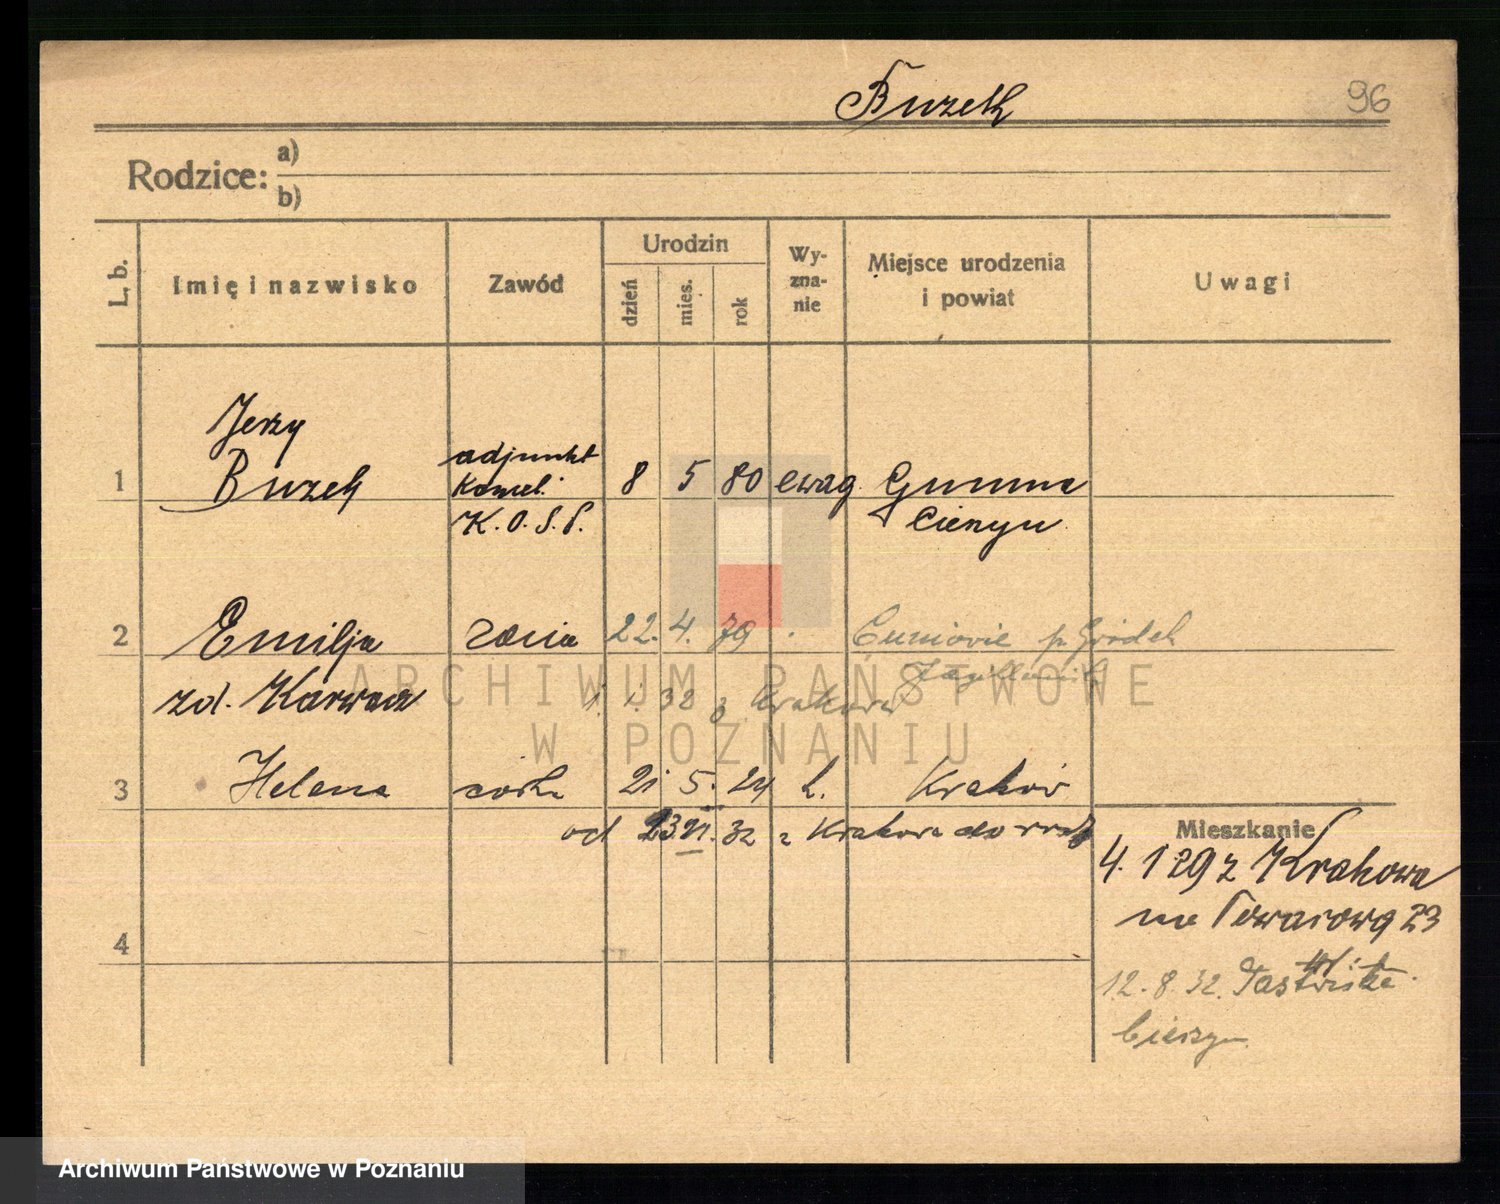 Buzek
96
Rodzice: a)
b)
L. b.
Imię i nazwisko
Zawód
Urodzin
dzień
mies.
rok
Wy-
zna-
nie
Miejsce urodzenia
i powiat
Uwagi
Jerzy
1 Buzek adjunkt 8 5 80 ewag Gumna
Kancel.
K. O. S. S. Cieszyn
2 Emilja żona 22. 4. 79 p. Gródek
zd. 1. 1. 32 z Krakowa Jagielloński
3 Helena córka 21 5. 24 k. Kraków
od 23 VI. 32 z Krakowa do rodz
4
Mieszkanie
4. 1 29 z Krakowa
na Towarową 23
12. 8. 32.
Cieszyn
ARCHIWUM PAŃSTWOWE
W POZNANIU
Archiwum Państwowe w Poznaniu